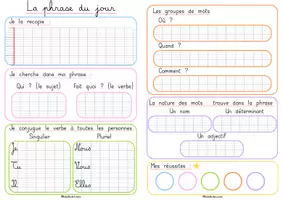 La phrase du jour
Je la recopie :
Je cherche dans ma phrase :
Qui ? (le sujet) Fait quoi ? (le verbe)
Je conjugue le verbe à toutes les personnes
Singulier Pluriel
Je Nous
Tu Vous
Il Elles
Les groupes de mots
Où ?
Quand ?
Comment ?
La nature des mots : trouve dans la phrase
Un nom Un déterminant
Un adjectif
Mes réussites :